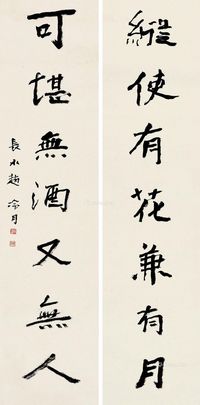 縱使有花兼有月
可堪無酒又無人
長水趙冷月